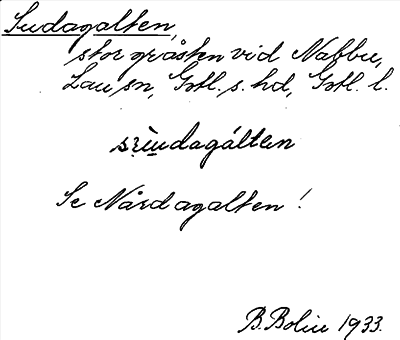 Sudagalten,
stor gråsten vid Nabbu,
Lau sn, Gotl. s. hd, Gotl. l.
sɛ̀udagálten
Se Nårdagalten!
B. Bolin 1933.